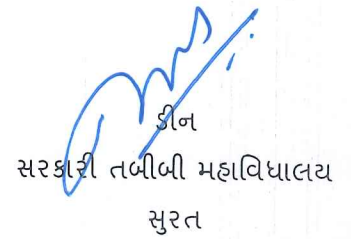 ડીન
સરકારી તબીબી મહાવિધાલય
સુરત